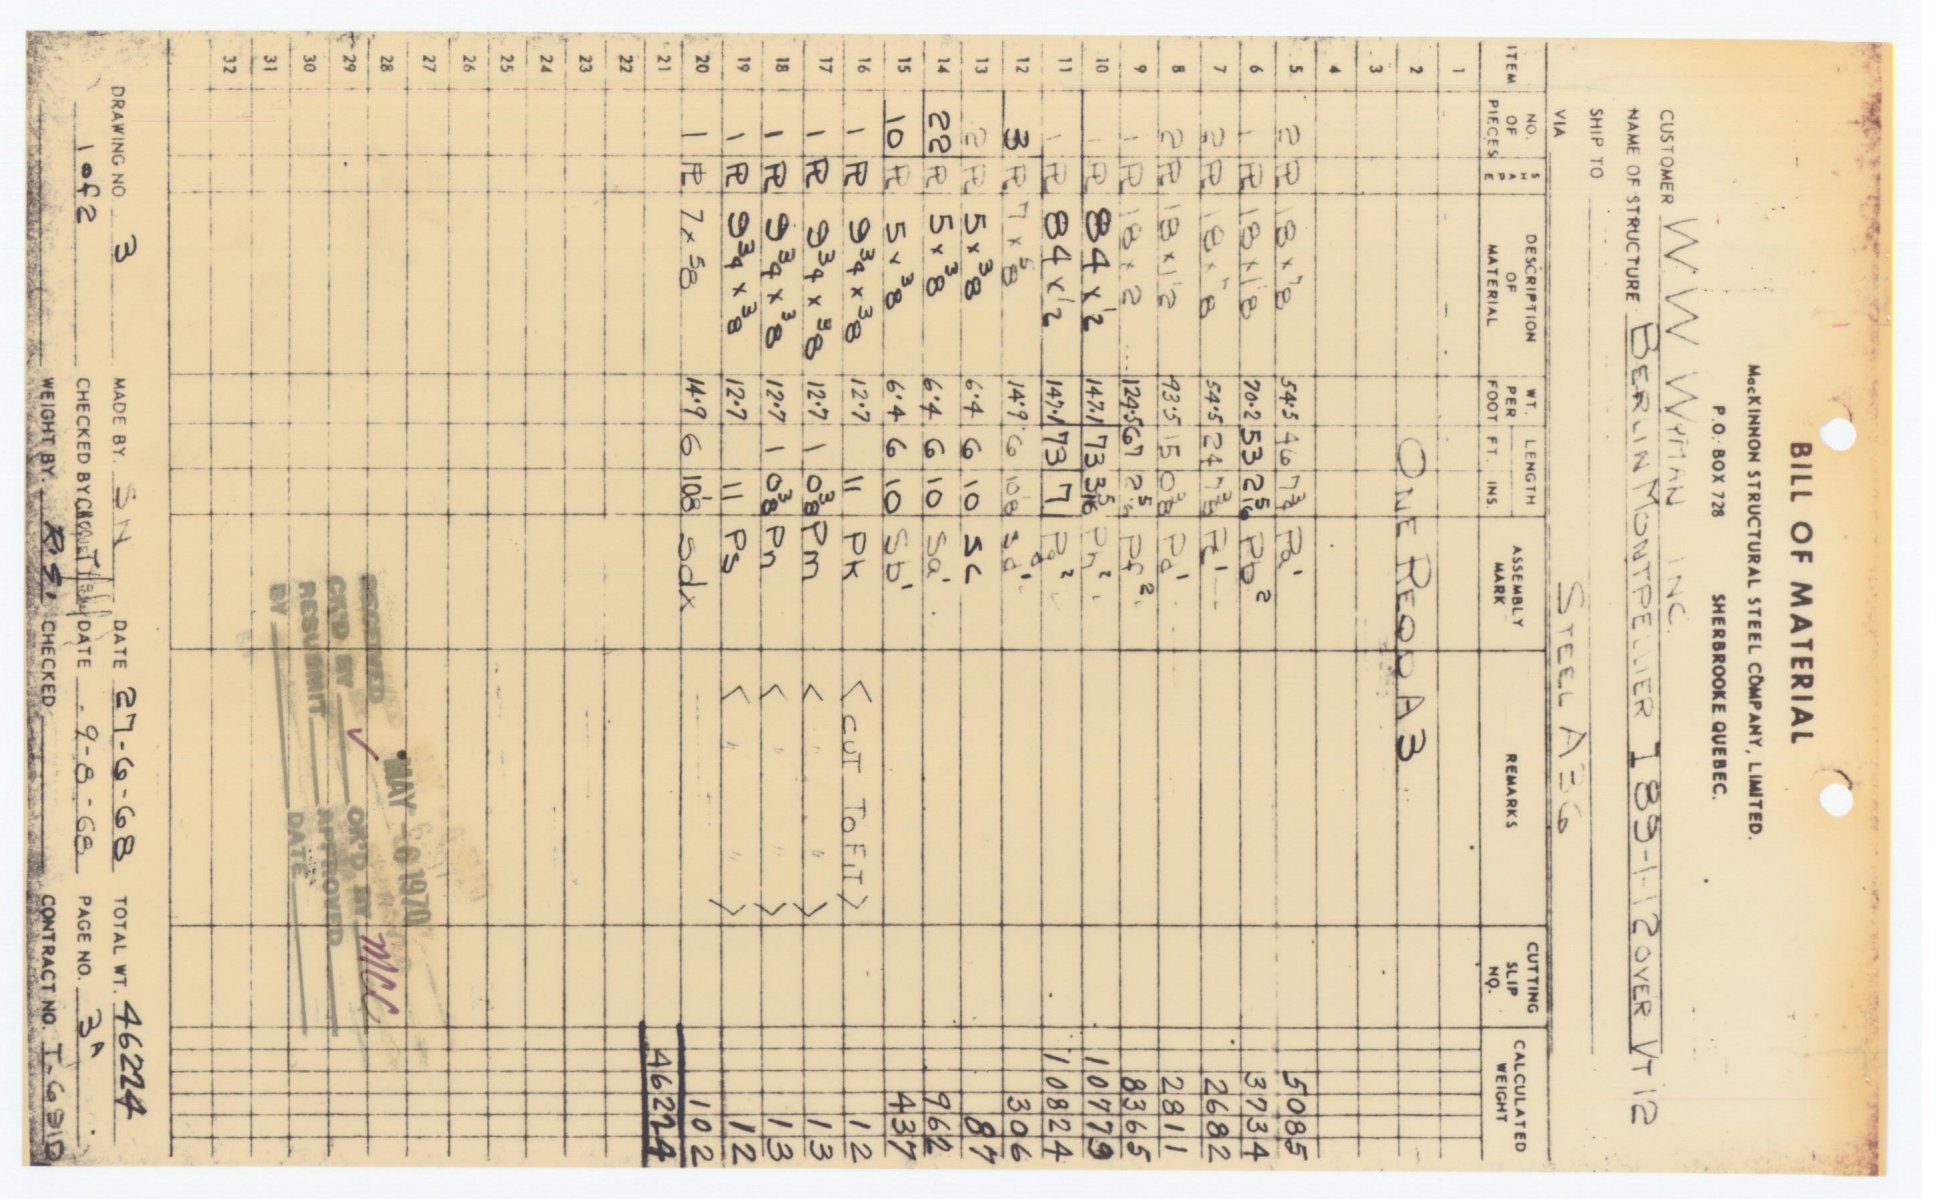 BILL OF MATERIAL
MacKINNON STRUCTURAL STEEL COMPANY, LIMITED.
P.O. BOX 728 SHERBROOKE QUEBEC.
CUSTOMER W. W. WYMAN INC.
NAME OF STRUCTURE BERLIN MONTPELLIER I 89-1-12 OVER VT 12
SHIP TO
VIA STEEL A 36
ITEM NO. OF PIECES SHAPE DESCRIPTION OF MATERIAL WT. PER FOOT LENGTH FT. INS. ASSEMBLY MARK REMARKS CUTTING SLIP NO. CALCULATED WEIGHT
1
2 ONE REQD A3
3
4
5 2 PL 18 x 7/8 54.5 46 7 3/4 Pa' 5085
6 1 PL 18 x 1 1/8 70.2 53 2 5/16 Pb2 3734
7 2 PL 18 x 7/8 54.5 24 7 3/8 Pc' 2682
8 2 PL 18 x 1 1/2 93.5 15 0 3/8 Pd' 2811
9 1 PL 18 x 2 124.5 67 2 5/16 Pf2 8365
10 1 PL 84 x 1/2 147.1 73 3 5/16 Ph2 10779
11 1 PL 84 x 1/2 147.1 73 7 Pg2 10824
12 3 PL 7 x 5/8 14.9 6 10 1/8 Sd' 306
13 2 PL 5 x 3/8 6.4 6 10 Sc 87
14 22 PL 5 x 3/8 6.4 6 10 Sa' 962
15 10 PL 5 x 3/8 6.4 6 10 Sb' 437
16 1 PL 9 3/4 x 3/8 12.7 11 Pk < CUT TO FIT > 12
17 1 PL 9 3/4 x 3/8 12.7 1 0 3/8 Pm < " " > 13
18 1 PL 9 3/4 x 3/8 12.7 1 0 3/8 Pn < " " > 13
19 1 PL 9 3/4 x 3/8 12.7 11 Ps < " " > 12
20 1 PL 7 x 5/8 14.9 6 10 1/8 Sdx 102
21 46224
22
23
24
25
26
27
28
29
30
31
32
MAY 1970
RECEIVED
CK'D BY OK'D BY MCC
RESUBMIT APPROVED
BY DATE
DRAWING NO 3 MADE BY. SN DATE 27-6-68 TOTAL WT. 46224
1 of 2 CHECKED BY DATE 9-8-68 PAGE NO. 3A
WEIGHT BY. R.S. CHECKED CONTRACT NO. T-6310